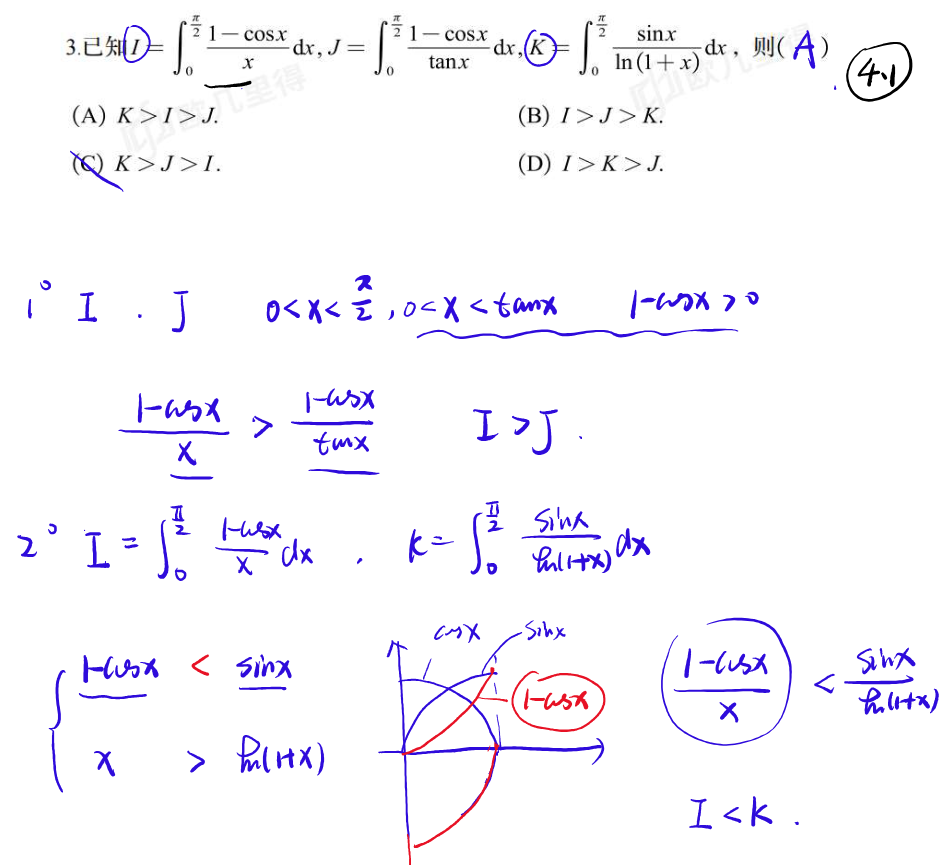 3.已知 I = ∫₀^{π/2} (1−cosx)/x dx, J = ∫₀^{π/2} (1−cosx)/tanx dx, K = ∫₀^{π/2} sinx/ln(1+x) dx，则( A )
4.1
(A) K>I>J. (B) I>J>K.
(C) K>J>I. (D) I>K>J.
1° I . J 0<x<π/2, 0<x<tanx 1-cosx>0
(1-cosx)/x > (1-cosx)/tanx I>J.
2° I = ∫₀^{π/2} (1-cosx)/x dx , k = ∫₀^{π/2} sinx/ln(1+x) dx
cosx sinx
{ 1-cosx < sinx 1-cosx (1-cosx)/x < sinx/ln(1+x)
x > ln(1+x)
I<K.